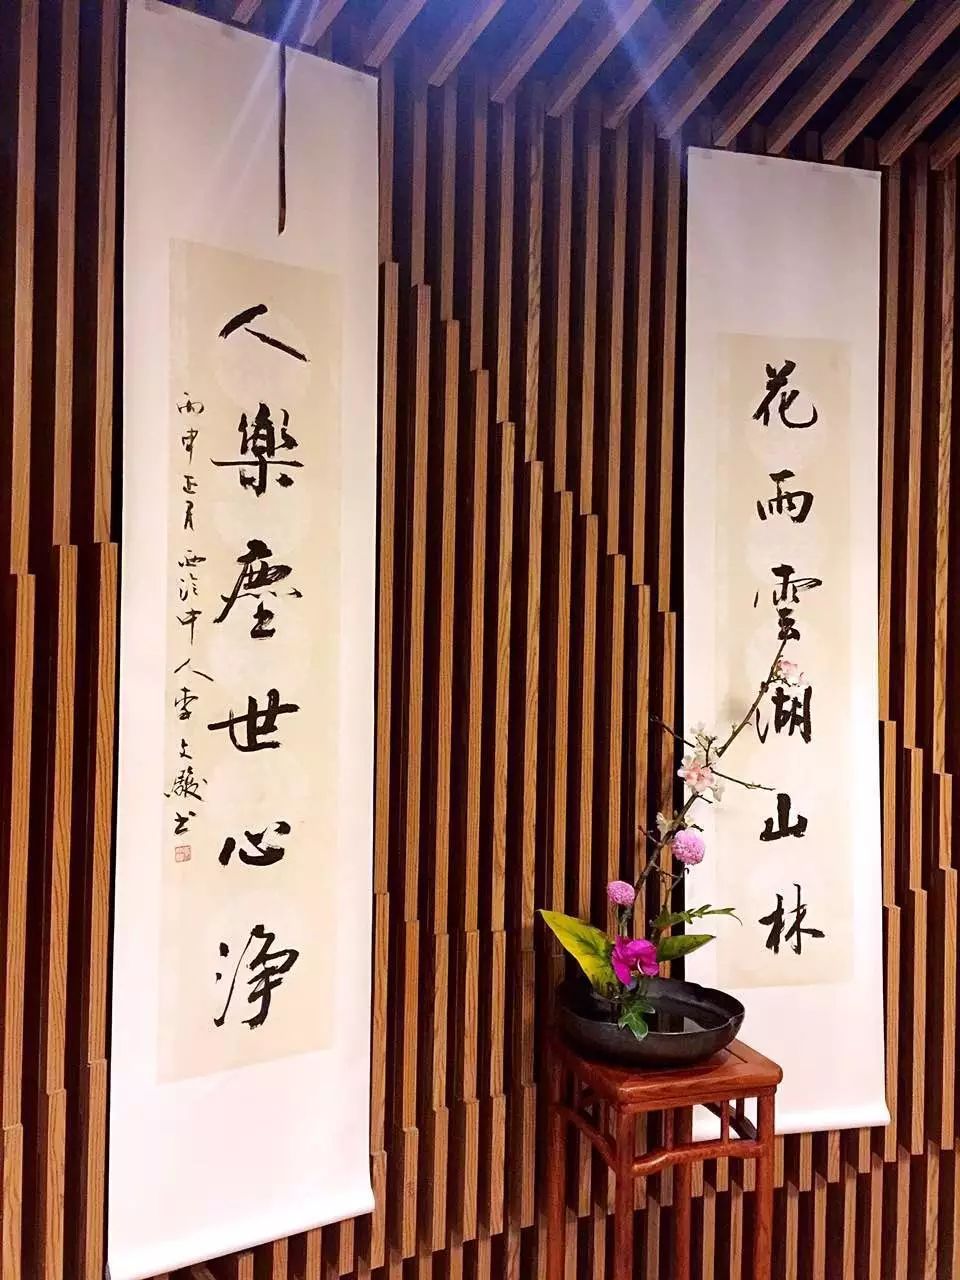 花雨雲湖山林
人樂塵世心淨
丙申正月西泠中人李文駿书